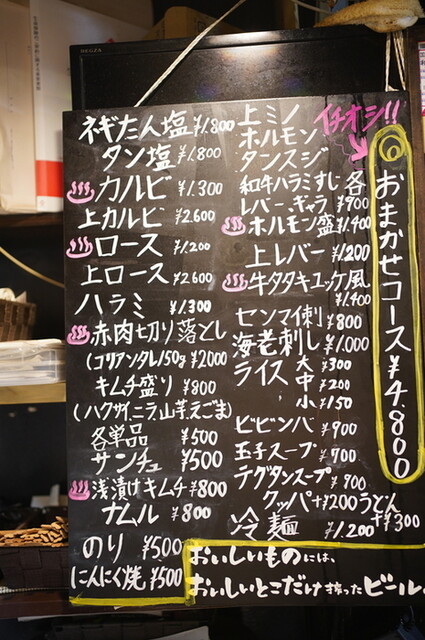 REGZA
ネギたん塩 ¥1.800
タン塩 ¥1.800
カルビ ¥1.300
上カルビ ¥2.600
ロース ¥1.200
上ロース ¥2600
ハラミ ¥1.300
赤肉切り落とし
(コリアンタレ150g ¥2000
キムチ盛り ¥900
(ハクサイ,ニラ,山芋,えごま)
各単品 ¥500
サンチュ ¥500
浅漬けキムチ ¥800
ナムル ¥800
のり ¥500
にんにく焼 ¥500
上ミノ
ホルモン
タンスジ
和牛ハラミすじ 各
レバー、ギャラ ¥900
ホルモン盛 ¥1.400
上レバー ¥1200
牛タタキユッケ風
¥1.400
センマイ刺 ¥800
海老刺し ¥1.000
ライス 大 ¥300
中 ¥200
小 ¥150
ビビンバ ¥900
玉子スープ ¥700
テグタンスープ ¥900
クッパ+¥200うどん
+¥300
冷麺 ¥1.200
イチオシ!!
◎おまかせコース¥4.800
おいしいものには、
おいしいとこだけ搾ったビール。